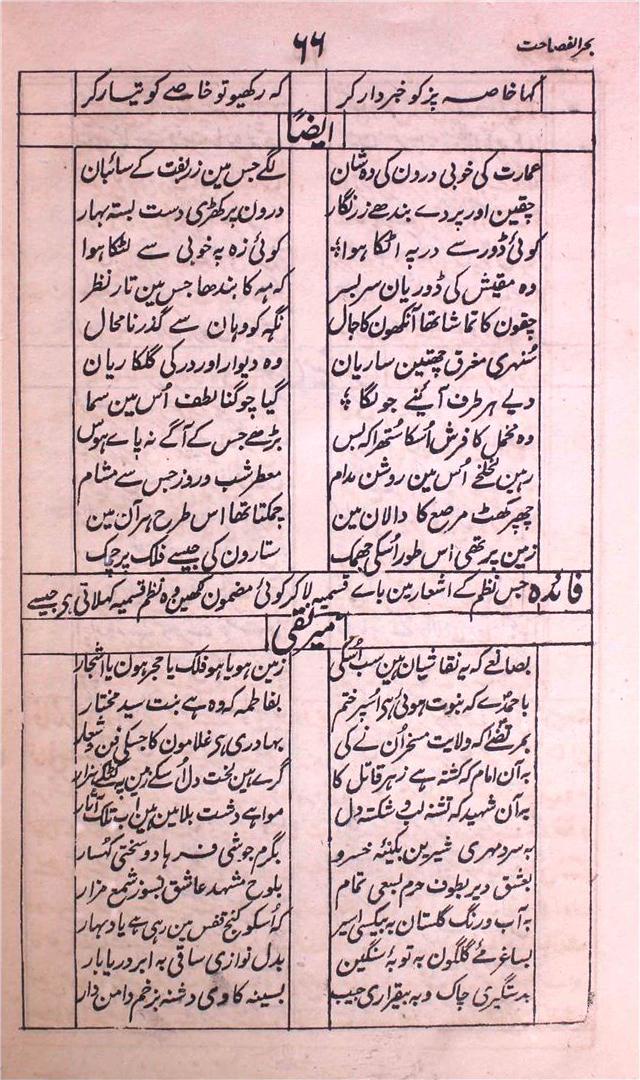 بحر الفصاحت
۶۶
کہا خاصہ پز کو خبردار کر کہ رکھیو تو خاصے کو تیار کر
ایضاً
عمارت کی خوبی درون کی وہ شان لگے جس مین زربفت کے سائبان
چقین اور پردے بندھے زرنگار درون پر کھڑی دست بستہ بہار
کوئی ڈور سے در پہ اٹکا ہوا کوئی زہ پہ خوبی سے لٹکا ہوا
وہ مقیش کی ڈوریان سر بسر کہ مہ کا بندھا جس مین تار نظر
چقون کا تماشا تھا آنکھون کا جال نگہ کو وہان سے گذرنا محال
سنہری مغرق چھتین ساریان وہ دیوار اور در کی گلکاریان
دیے ہر طرف آئینے جو لگا گیا چوگنا لطف اُس مین سما
وہ مخمل کا فرش اُسکا ستھرا کہ بس بڑھے جس کے آگے نہ پاے ہوس
رہین لخلخے اُس مین روشن مدام معطر شب و روز جس سے مشام
چھپر کھٹ مرصع کا دالان مین چمکتا تھا اس طرح ہر آن مین
زمین پر تھی اس طور اُسکی جھمک ستارون کی جیسے فلک پر چمک
فائدہ جس نظم کے اشعار مین باے قسمیہ لا کر کوئی مضمون لکھین وہ نظم قسمیہ کہلاتی ہی جیسے
میر تقی
بصانعے کہ یہ نقاشیان ہین سب اُسکی زمین ہو یا ہو فلک یا حجر ہون یا اشجار
باحمدے کہ نبوت ہوئی ہی اُسپر ختم بفاطمہ کہ وہ ہے بنت سید مختار
بمرتضے کہ ولایت مسخر اُن نے کی بہادری ہی غلامون کا جسکی فن و شعار
بہ آن امام کہ کشتہ ہے زہر قاتل کا گرے ہین لخت دل اُسکے زمین پہ کٹکے ہزار
بہ آن شہید کہ تشنہ لب و شکستہ دل موا ہے دشت بلا مین ہین اب تلک آثار
بہ سرد مہری شیرین بکینۂ خسرو بگرم جوشی فرہاد و سختی کہسار
بعشق دیر بطوف حرم بسعی تمام بلوح مشہد عاشق بسوز شمع مزار
بہ آب و رنگ گلستان بہ بیکسی اسیر کہ اُسکو کنج قفس مین رہی ہے یاد بہار
بساغر مے گلگون بہ توبۂ سنگین بدل نوازی ساقی بہ ابر دریا بار
بدستگیری چاک و بہ بیقراری جیب بسینہ کاوی دشنہ بزخم دامن دار